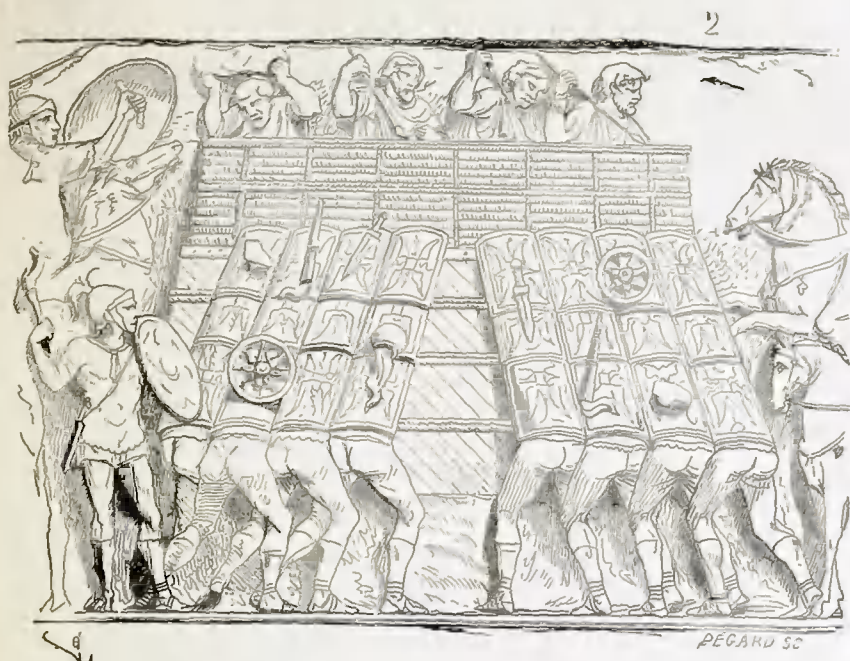 2
PÉGARD SC